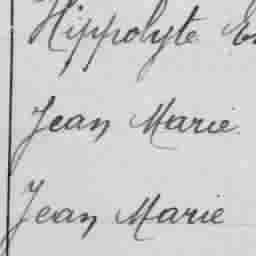 Hippolyte
Jean Marie
Jean Marie